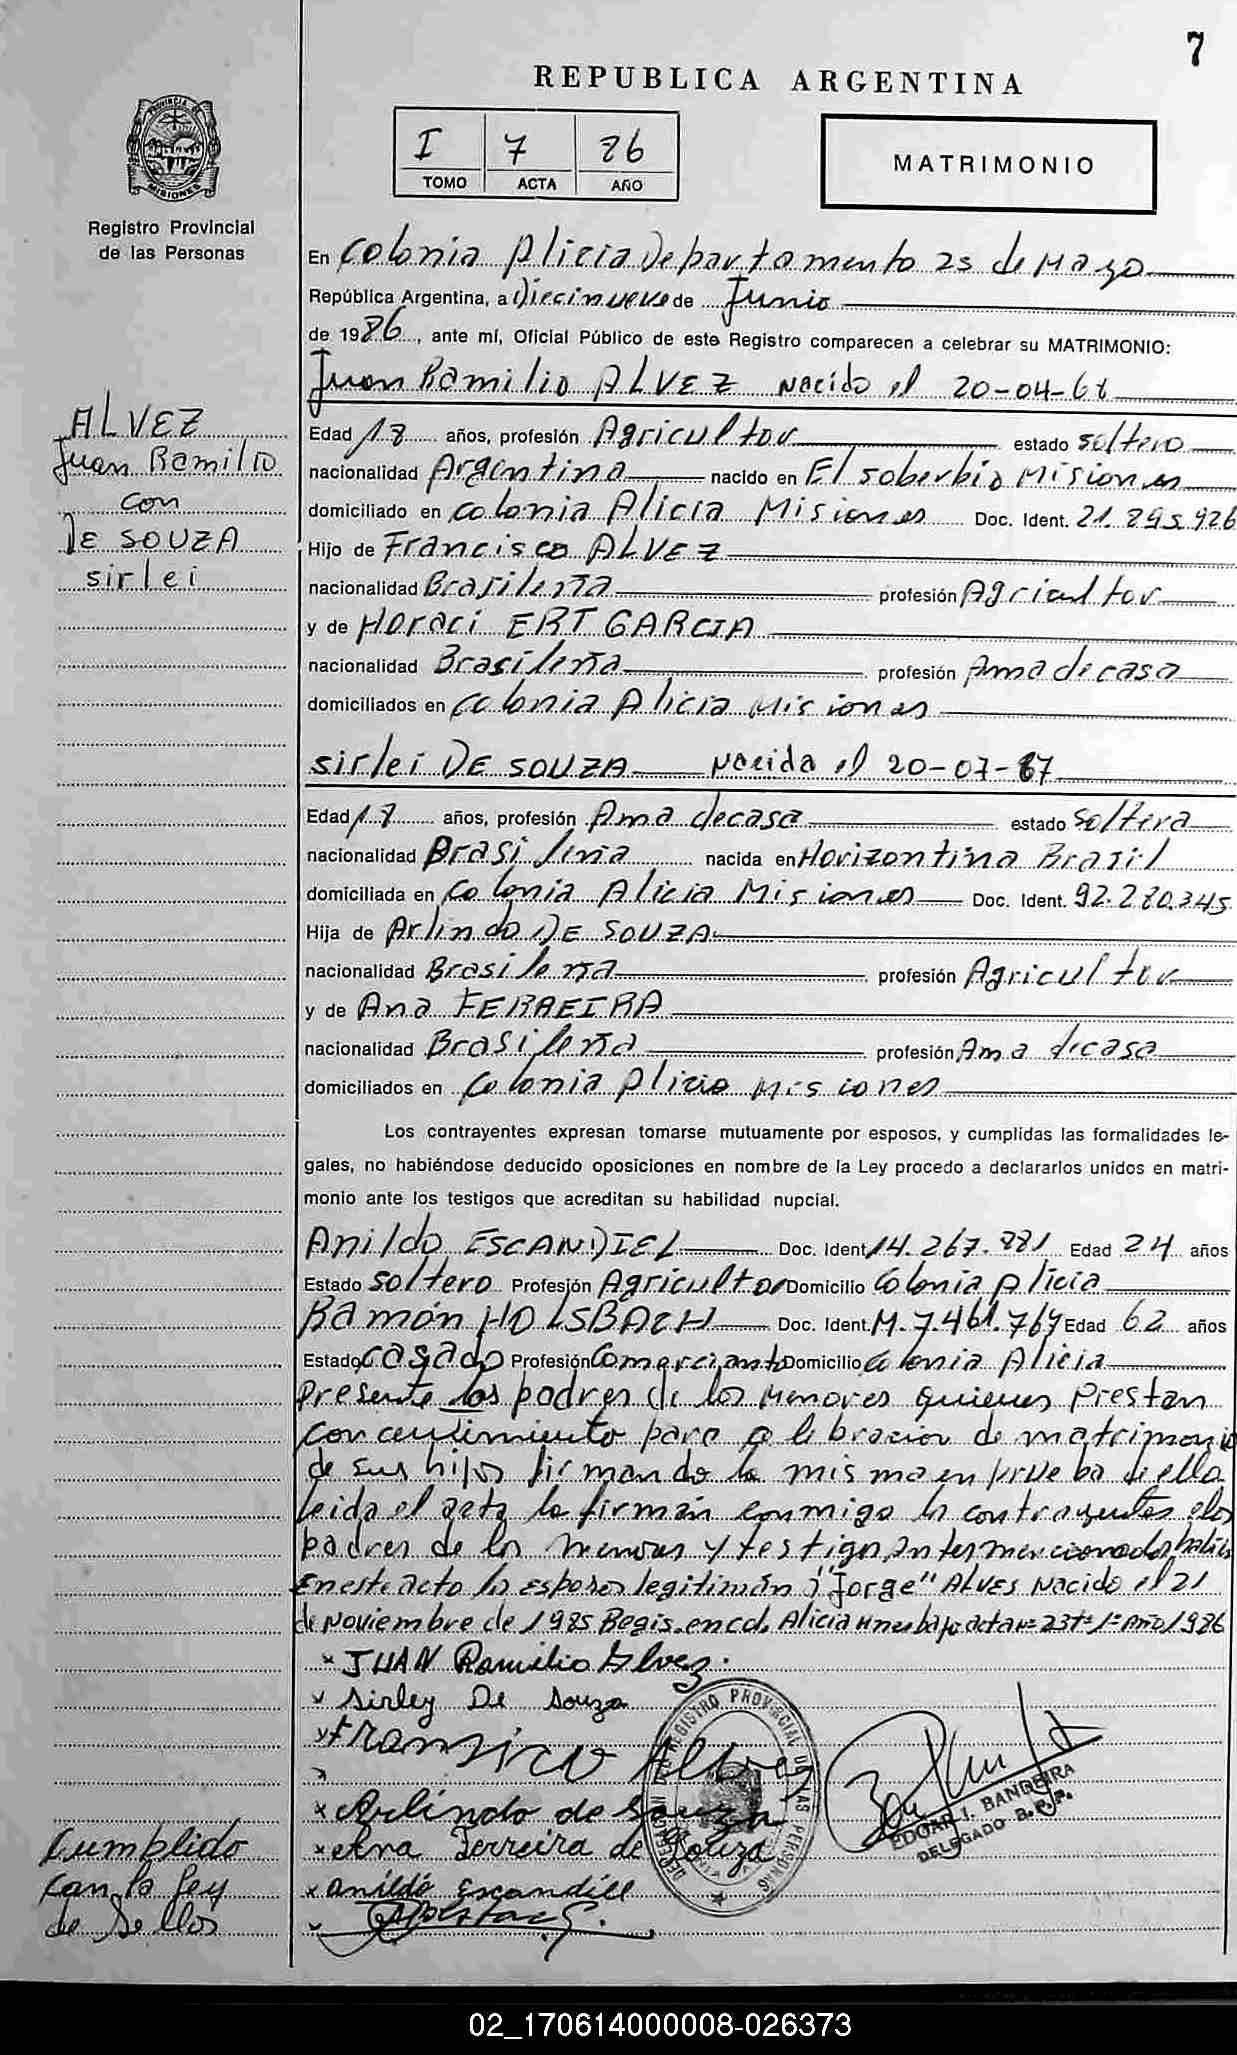 7
REPUBLICA ARGENTINA
I 7 86
TOMO ACTA AÑO
MATRIMONIO
PROVINCIA DE MISIONES
Registro Provincial
de las Personas
En Colonia Alicia Departamento 25 de Mayo
República Argentina, a Diecinueve de Junio
de 1986, ante mí, Oficial Público de este Registro comparecen a celebrar su MATRIMONIO:
Juan Ramilio ALVEZ Nacido el 20-04-68
ALVEZ
Juan Ramilio
con
DE SOUZA
sirlei
Edad 18 años, profesión Agricultor estado soltero
nacionalidad Argentina nacido en El soberbio Misiones
domiciliado en Colonia Alicia Misiones Doc. Ident. 21.895.926
Hijo de Francisco ALVEZ
nacionalidad Brasileña profesión Agricultor
y de Horaci ERT GARCIA
nacionalidad Brasileña profesión Ama de casa
domiciliados en Colonia Alicia Misiones
sirlei DE SOUZA Nacida el 20-07-67
Edad 18 años, profesión Ama de casa estado soltera
nacionalidad Brasileña nacida en Horizontina Brasil
domiciliada en Colonia Alicia Misiones Doc. Ident. 92.280.345
Hija de Arlindo DE SOUZA
nacionalidad Brasileña profesión Agricultor
y de Ana FERREIRA
nacionalidad Brasileña profesión Ama de casa
domiciliados en Colonia Alicia Misiones
Los contrayentes expresan tomarse mutuamente por esposos, y cumplidas las formalidades le-
gales, no habiéndose deducido oposiciones en nombre de la Ley procedo a declararlos unidos en matri-
monio ante los testigos que acreditan su habilidad nupcial.
Anildo ESCANDIEL Doc. Ident. 14.267.881 Edad 24 años
Estado Soltero Profesión Agricultor Domicilio Colonia Alicia
Ramón HOLSBACH Doc. Ident. M.7.461.764 Edad 62 años
Estado Casado Profesión Comerciante Domicilio Colonia Alicia
Presente los padres de los Menores quienes Prestan
concentimiento para celebracion de matrimonio
de sus hijos firmando la misma en prueba de ello
leida el acta la firmán conmigo los contrayentes, los
padres de los menores y testigo
En este acto los Esposos legitimán a "Jorge" ALVES Nacido el 21
de Noviembre de 1985 Regis. en col. Alicia Mnes bajo acta Nº 23 tº 1º Año 1986
x JUAN Ramilio Alvez.
x Sirley De Souza
x Fransico Alvez
x Arlindo de Souza
x Ana Ferreira de Souza
x anildo Escandiel
REGISTRO PROVINCIAL DE LAS PERSONAS
EDGAR I. BANDEIRA
DELEGADO R.P.P.
Cumplido
con la ley
de Sellos
02_170614000008-026373